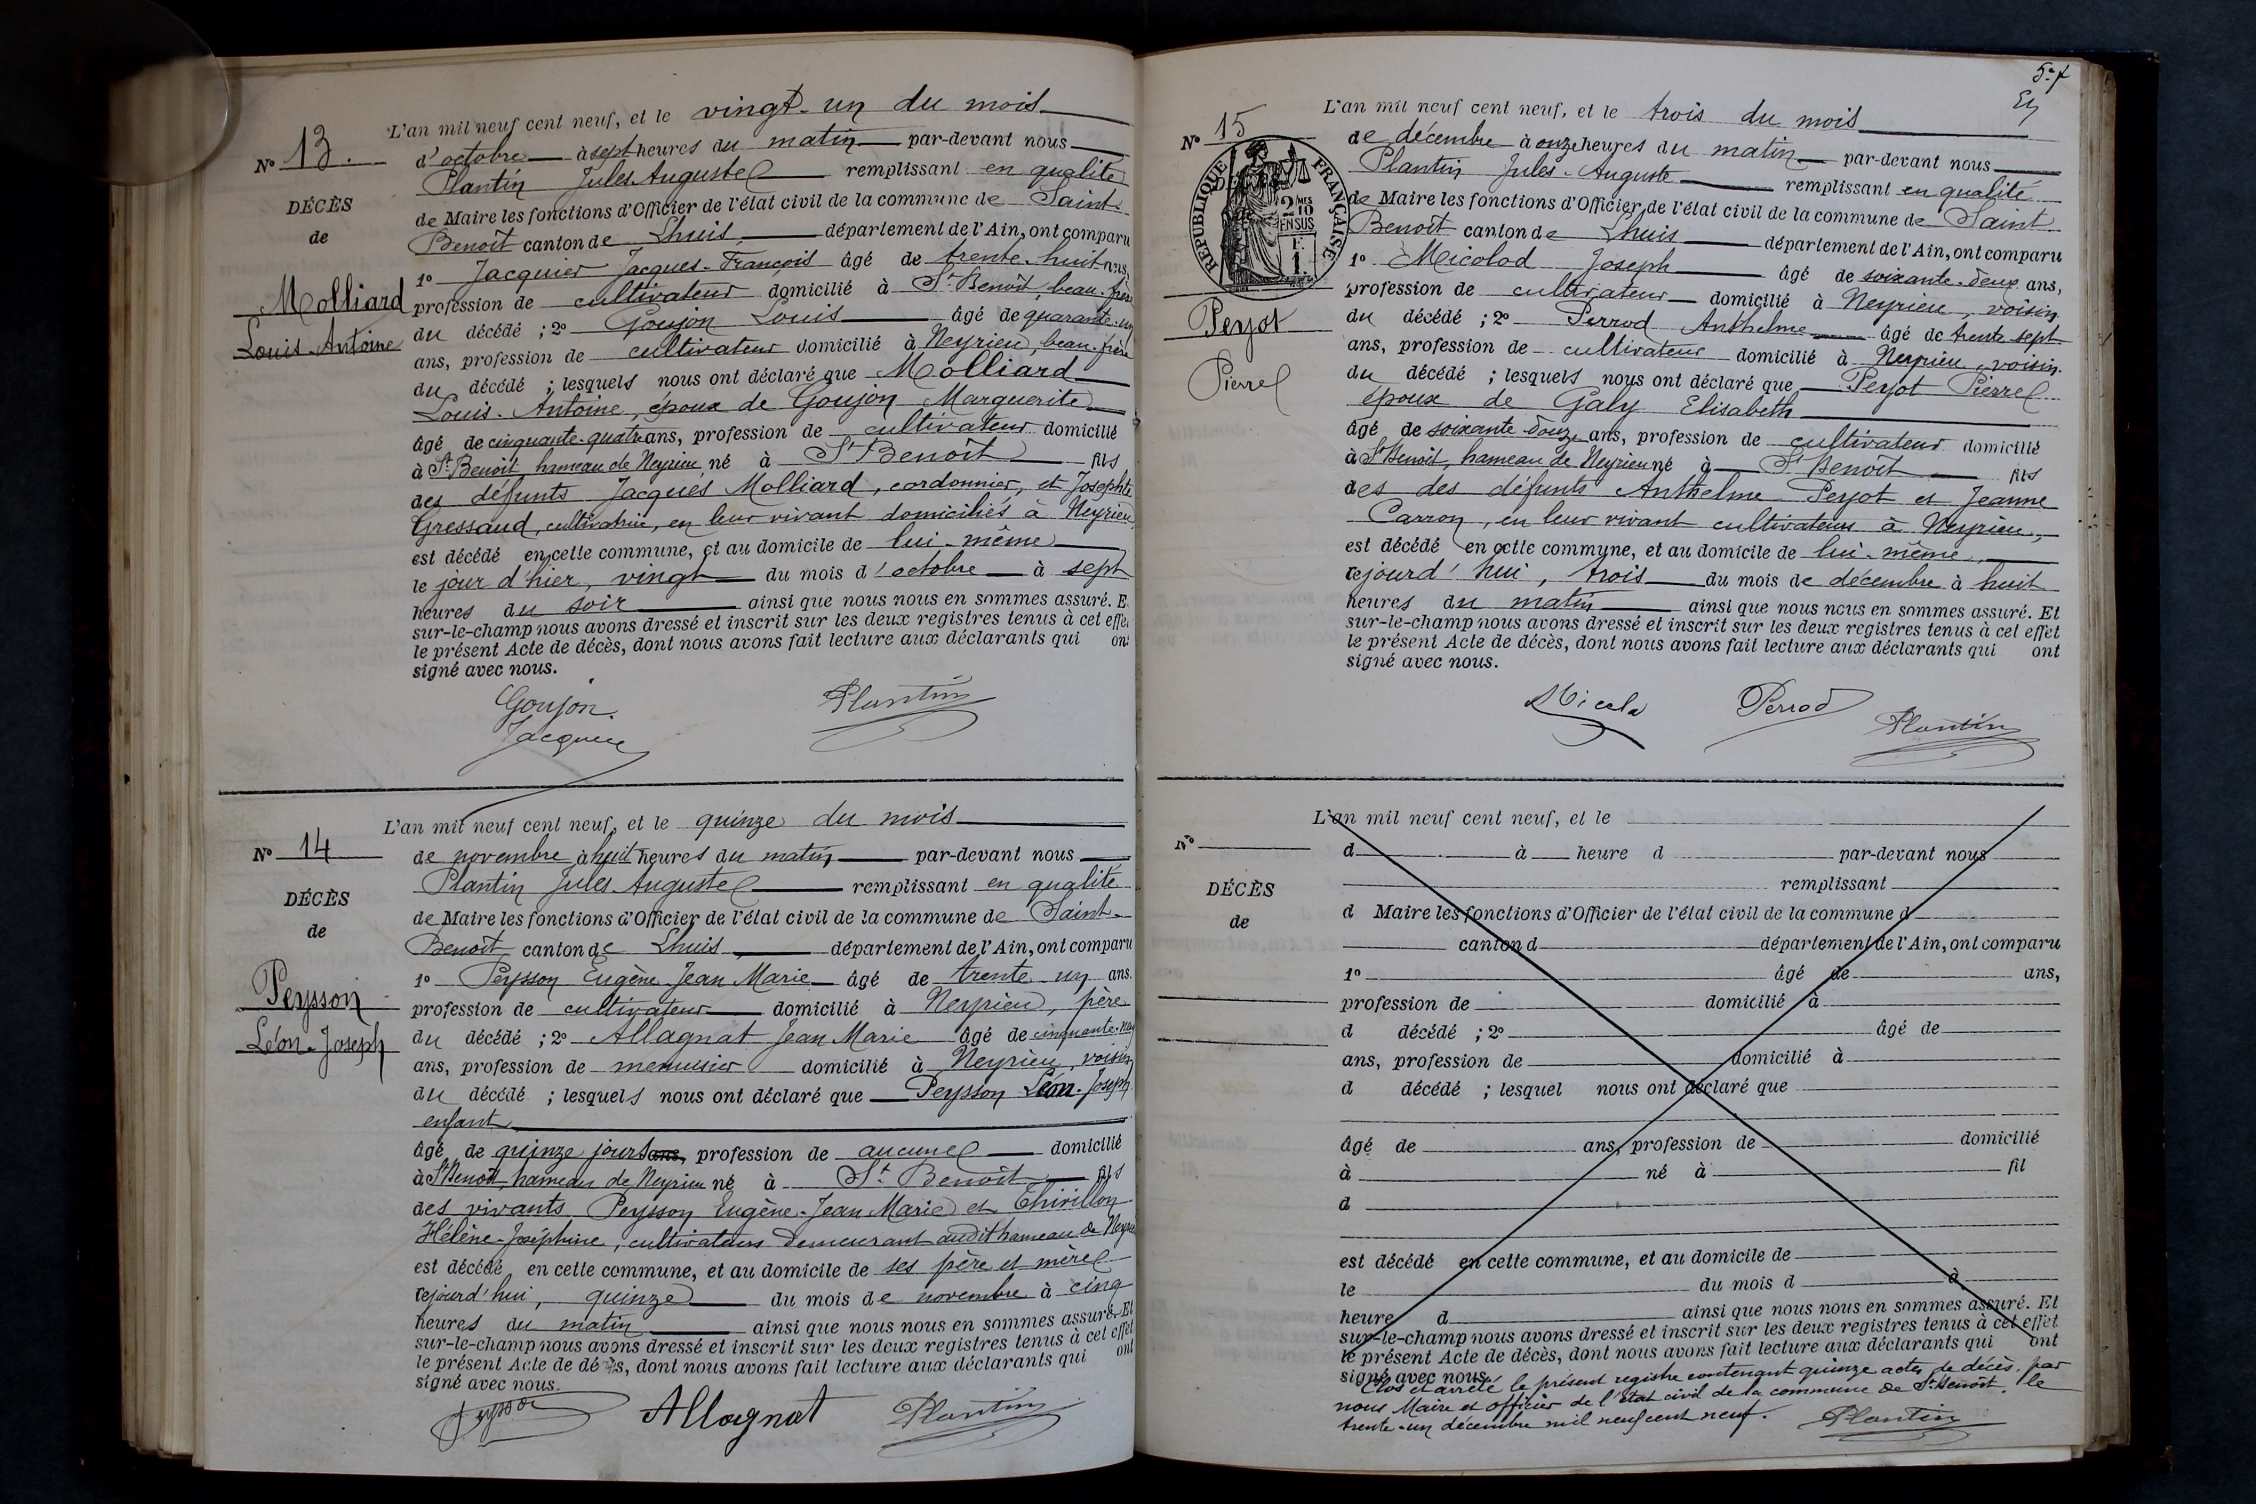 L'an mil neuf cent neuf, et le vingt-un du mois
No 13.
d'octobre à sept heures du matin par-devant nous
Plantin Jules Auguste remplissant en qualité
DÉCÈS
de Maire les fonctions d'Officier de l'état civil de la commune de Saint-
de
Benoît canton de Lhuis département de l'Ain, ont comparu
1o Jacquier Jacques-François âgé de trente-huit ans,
Molliard
profession de cultivateur domicilié à St Benoît, beau-frère
Louis-Antoine
du décédé ; 2o Goujon Louis âgé de quarante-un
ans, profession de cultivateur domicilié à Neyrieu, beau-frère
du décédé ; lesquels nous ont déclaré que Molliard
Louis-Antoine, époux de Goujon Marguerite
âgé de cinquante-quatre ans, profession de cultivateur domicilié
à St Benoît hameau de Neyrieu né à St Benoît fils
des défunts Jacques Molliard, cordonnier, et Josephte
Gressaud, cultivatrice, en leur vivant domiciliés à Neyrieu
est décédé en cette commune, et au domicile de lui-même
le jour d'hier, vingt du mois d'octobre à sept
heures du soir ainsi que nous nous en sommes assuré. E
sur-le-champ nous avons dressé et inscrit sur les deux registres tenus à cet effe
le présent Acte de décès, dont nous avons fait lecture aux déclarants qui ont
signé avec nous.
Goujon. Plantin
Jacquier
L'an mil neuf cent neuf, et le quinze du mois
No 14
de novembre à huit heures du matin par-devant nous
Plantin Jules Auguste remplissant en qualité
DÉCÈS
de Maire les fonctions d'Officier de l'état civil de la commune de Saint-
de
Benoît canton de Lhuis département de l'Ain, ont comparu
1o Peysson Eugène Jean Marie âgé de trente-un ans.
Peysson
profession de cultivateur domicilié à Neyrieu, père
Léon-Joseph
du décédé ; 2o Allagnat Jean Marie âgé de cinquante-neuf
ans, profession de menuisier domicilié à Neyrieu, voisin
du décédé ; lesquels nous ont déclaré que Peysson Léon-Joseph
enfant
âgé de quinze jours ans, profession de aucune domicilié
à St Benoît, hameau de Neyrieu né à St Benoît fils
des vivants Peysson Eugène-Jean Marie et Thivillon
Hélène-Joséphine, cultivateurs demeurant audit hameau de Neyrieu
est décédé en cette commune, et au domicile de ses père et mère
cejourd'hui, quinze du mois de novembre à cinq
heures du matin ainsi que nous nous en sommes assuré. Et
sur-le-champ nous avons dressé et inscrit sur les deux registres tenus à cet effet
le présent Acte de décès, dont nous avons fait lecture aux déclarants qui ont
signé avec nous.
Peysson Allagnat Plantin
L'an mil neuf cent neuf, et le trois du mois
No 15
de décembre à onze heures du matin par-devant nous
Plantin Jules-Auguste remplissant en qualité
de Maire les fonctions d'Officier de l'état civil de la commune de Saint
RÉPUBLIQUE FRANÇAISE
2/10 MES
EN SUS
Benoît canton de Lhuis département de l'Ain, ont comparu
1o Micolod Joseph âgé de soixante-deux ans,
profession de cultivateur domicilié à Neyrieu, voisin
Peyot
du décédé ; 2o Perrod Anthelme âgé de trente sept
ans, profession de cultivateur domicilié à Neyrieu, voisin
Pierre
du décédé ; lesquels nous ont déclaré que Peyot Pierre
époux de Galy Elisabeth
âgé de soixante douze ans, profession de cultivateur domicilié
à St Benoît, hameau de Neyrieu né à St Benoît fils
des des défunts Anthelme Peyot et Jeanne
Carron, en leur vivant cultivateurs à Neyrieu,
est décédé en cette commune, et au domicile de lui-même,
cejourd'hui, trois du mois de décembre à huit
heures du matin ainsi que nous nous en sommes assuré. Et
sur-le-champ nous avons dressé et inscrit sur les deux registres tenus à cet effet
le présent Acte de décès, dont nous avons fait lecture aux déclarants qui ont
signé avec nous.
Micola Perrod Plantin
L'an mil neuf cent neuf, et le
No
d à heure d par-devant nous
remplissant
DÉCÈS
d Maire les fonctions d'Officier de l'état civil de la commune d
de
canton d département de l'Ain, ont comparu
1o âgé de ans,
profession de domicilié à
d décédé ; 2o âgé de
ans, profession de domicilié à
d décédé ; lesquel nous ont déclaré que
âgé de ans, profession de domicilié
à né à fil
d
est décédé en cette commune, et au domicile de
le du mois d à
heure d ainsi que nous nous en sommes assuré. Et
sur-le-champ nous avons dressé et inscrit sur les deux registres tenus à cet effet
le présent Acte de décès, dont nous avons fait lecture aux déclarants qui ont
signé avec nous.
Clos et arrêté le présent registre contenant quinze actes de décès, par
nous Maire et officier de l'Etat civil de la commune de St Benoît, le
trente-un décembre mil neuf cent neuf. Plantin